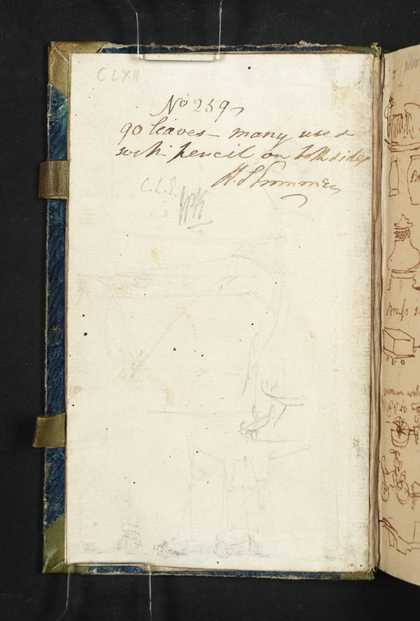 CLXII
No 259
90 leaves - many used
with pencil on both sides
C.L.E.